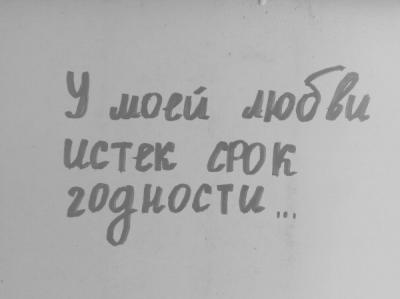 У моей любви
истек срок
годности...